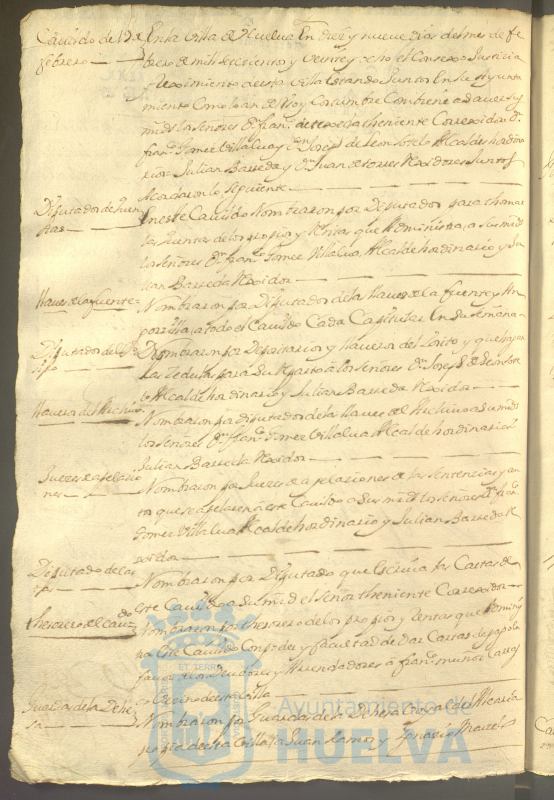 Cavildo de 19 de En la villa de Huelva En diez y nueve dias del mes de fe
febrero brero de mil setecientos y veinte y ocho el Consexo Justicia
y Reximiento de esta villa estando Juntos En su ayunta
miento Como lo an de Uso y Costumbre Combiene a saver sus
mrds los señores Dn franco theniente Correxidor Dn
franco Gomez Villalva y Dn Joseph de leon Sotelo Alcaldes hordina
rios Julian Barreda y Dn Juan de torres Rexidores Juntos
Acordaron lo siguiente
Diputador de quen En este Cavildo Nombraron por Diputador para thomar
tas las quentas de los propios y Rentas que Administra a sus mrds
los señores Dn franco Gomez Villalva Alcalde hordinario y Ju
lian Barreda Rexidor
llaves de la fuente Nombraron por Diputador de la llaves de la fuente
por a todo el Cavildo Cada Capitular En su semana
Diputador del Po Nombraron por Depositarios y llaveros del Posito y que hagan
sito las zedulas para su Reparto a los señores Dn Joseph de leon Sote
lo Alcalde hordinario y Julian Barreda Rexidor
llavero del Archivo Nombraron por diputador de la llaves del Archivo a sus mrds
los señores Dn franco Gomez Villalva Alcalde hordinario
Julian Barreda Rexidor
Juezes de apelacio Nombraron por Juezes de apelaciones de las sentencias
nes que se apelaren a este Cavildo a sus mrds los señores Dn franco
Gomez Villalva Alcalde hordinario y Julian Barreda Re
xidor
Diputado de Car Nombraron por Diputado que Escriva las Cartas de
tas este Cavildo a su mrd el señor theniente Correxidor
thesorero del cavdo Nombraron por thesorero de los propios y Rentas que Adminis
tra este Cavildo Con poder y facultad de dar Cartas de pago
favor de los deudores y Arrendadores a franco muñoz
vezino de esta villa
Guardas de la Dehe Nombraron por Guardas de la Dehesa
sa propia de esta villa a Juan Ramos y Ignacio
Ayuntamiento de
HUELVA